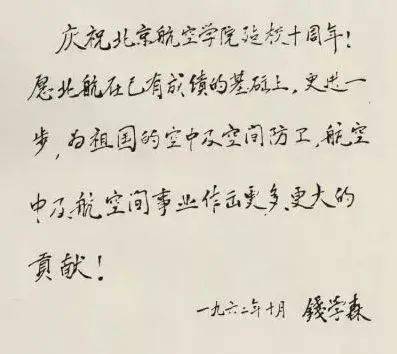 庆祝北京航空学院建校十周年!
愿北航在已有成绩的基础上,更进一
步,为祖国的空中及空间防卫,航空
中及航空间事业作出更多、更大的
貢献!
一九六二年十月 錢学森